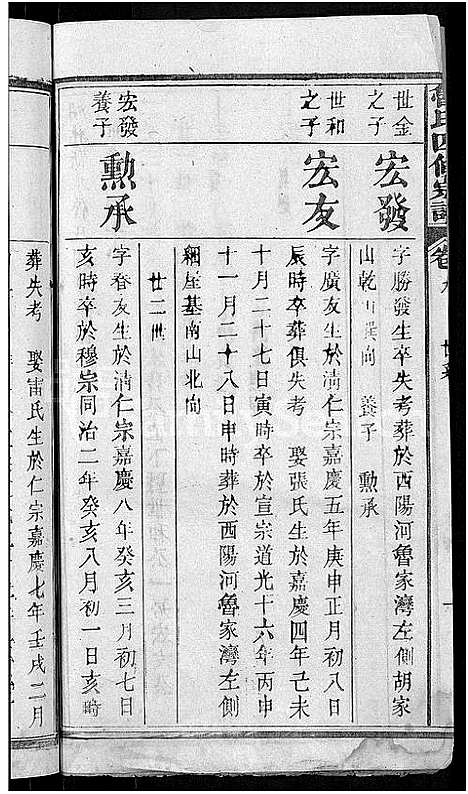 氏四修宗譜
卷
世金
之子
宏發
字勝發生卒失考葬於酉陽河魯家灣左側胡家
山乾山巽向 養子 勲承
世和
之子
宏友
字廣友生於清仁宗嘉慶五年庚申正月初八日
辰時卒葬俱失考 娶張氏生於嘉慶四年己未
十月二十七日寅時卒於宣宗道光十六年丙申
十一月二十八日申時葬於酉陽河魯家灣左側
屋基南山北向
廿二世
宏發
養子
勲承
字春友生於清仁宗嘉慶八年癸亥三月初七日
亥時卒於穆宗同治二年癸亥八月初一日亥時
葬失考 娶雷氏生於仁宗嘉慶七年壬戌二月